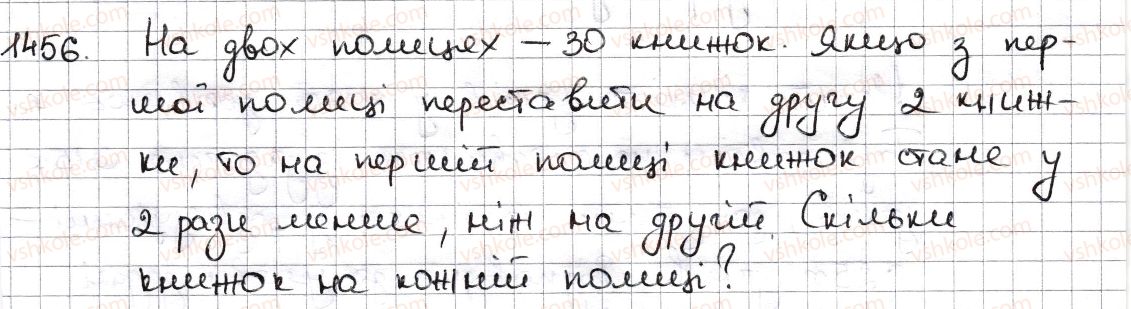 1456. На двох полицях – 30 книжок. Якщо з пер-
шої полиці переставити на другу 2 книж-
ки, то на першій полиці книжок стане у
2 рази менше, ніж на другій. Скільки
книжок на кожній полиці?